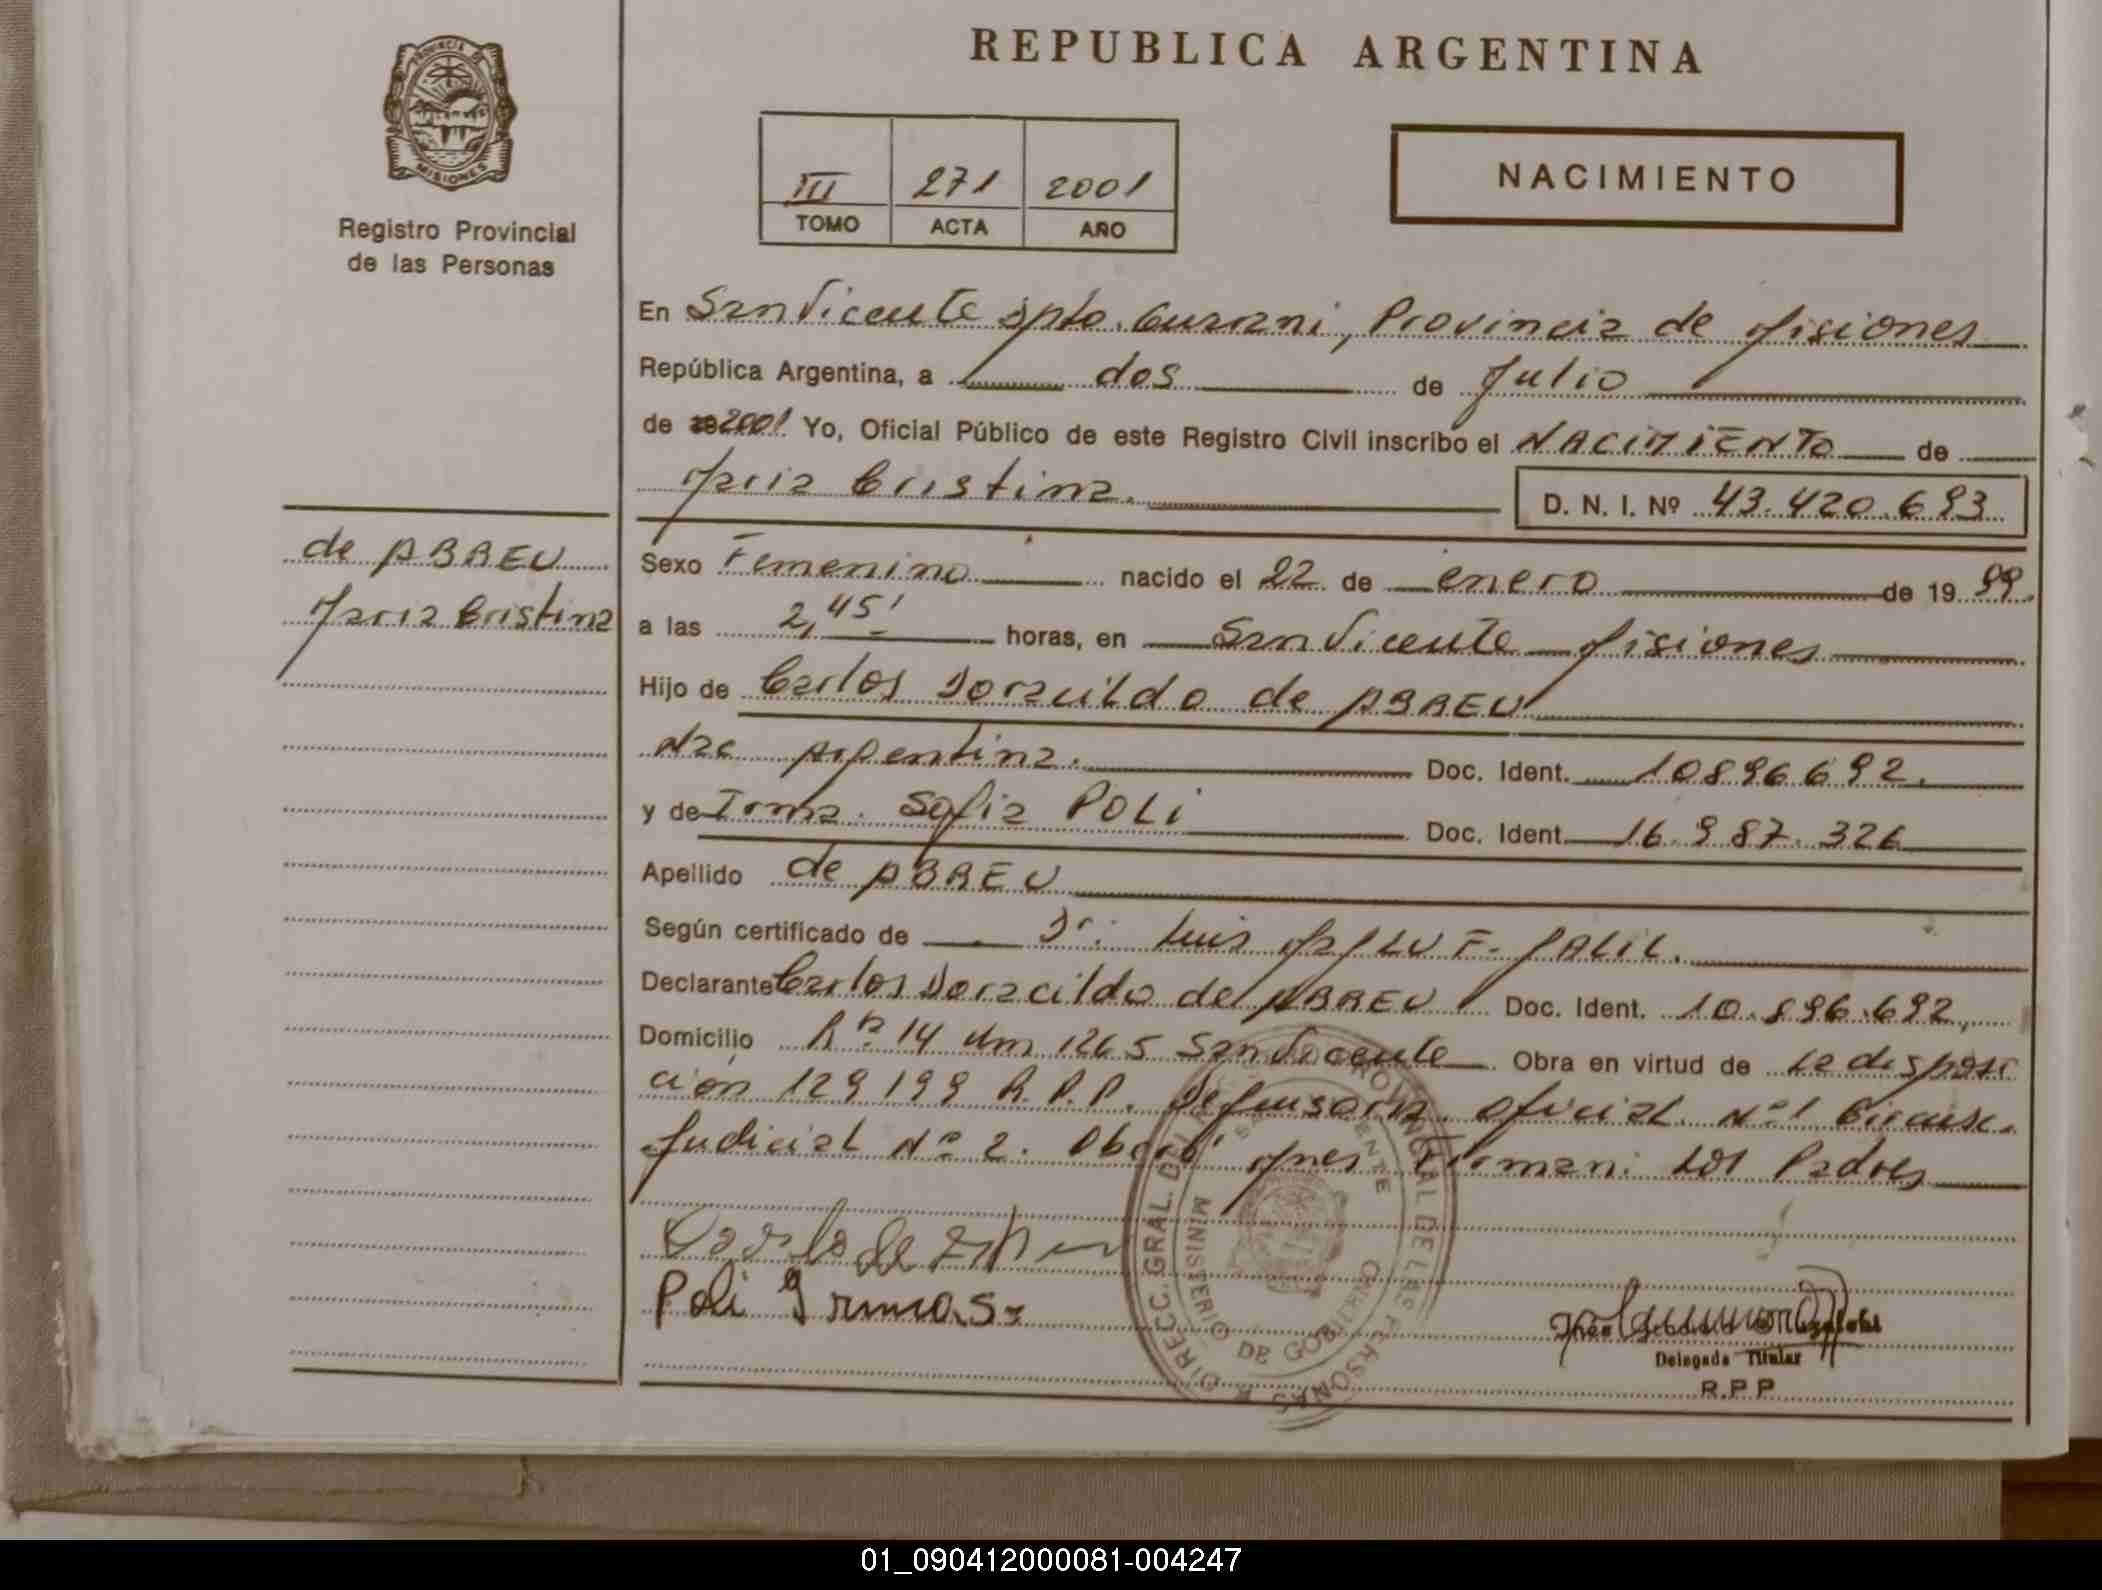 PROVINCIA DE
MISIONES
Registro Provincial
de las Personas
REPUBLICA ARGENTINA
III 271 2001
TOMO ACTA AÑO
NACIMIENTO
En San Vicente Dpto. Guarani, Provincia de Misiones
República Argentina, a dos de Julio
de 2001 Yo, Oficial Público de este Registro Civil inscribo el NACIMIENTO de
Maria Cristina.
D. N. I. Nº 43.420.693
de ABREU
Maria Cristina
Sexo Femenino nacido el 22 de enero de 1999.
a las 2,45' horas, en San Vicente Misiones
Hijo de Carlos Doraildo de ABREU
Nac Argentina. Doc. Ident. 10896692.
y de Irma. Sofia POLI Doc. Ident. 16.987.326
Apellido de ABREU
Según certificado de Dr. Luis F. JALIL.
Declarante Carlos Doracildo de ABREU Doc. Ident. 10.896.692,
Domicilio Rta 14 Km 1265 San Vicente Obra en virtud de la disposi
ción 129199 R.P.P. Defensoria oficial Nº 1 Circunsc.
Judicial Nº 2. Oberá Mnes Firman: los Padres
Poli Irma S
DIRECC. GRAL. DEL REGISTRO PROVINCIAL DE LAS PERSONAS
MINISTERIO DE GOBIERNO
SAN VICENTE
Delegada Titular
R.P.P
01_090412000081-004247